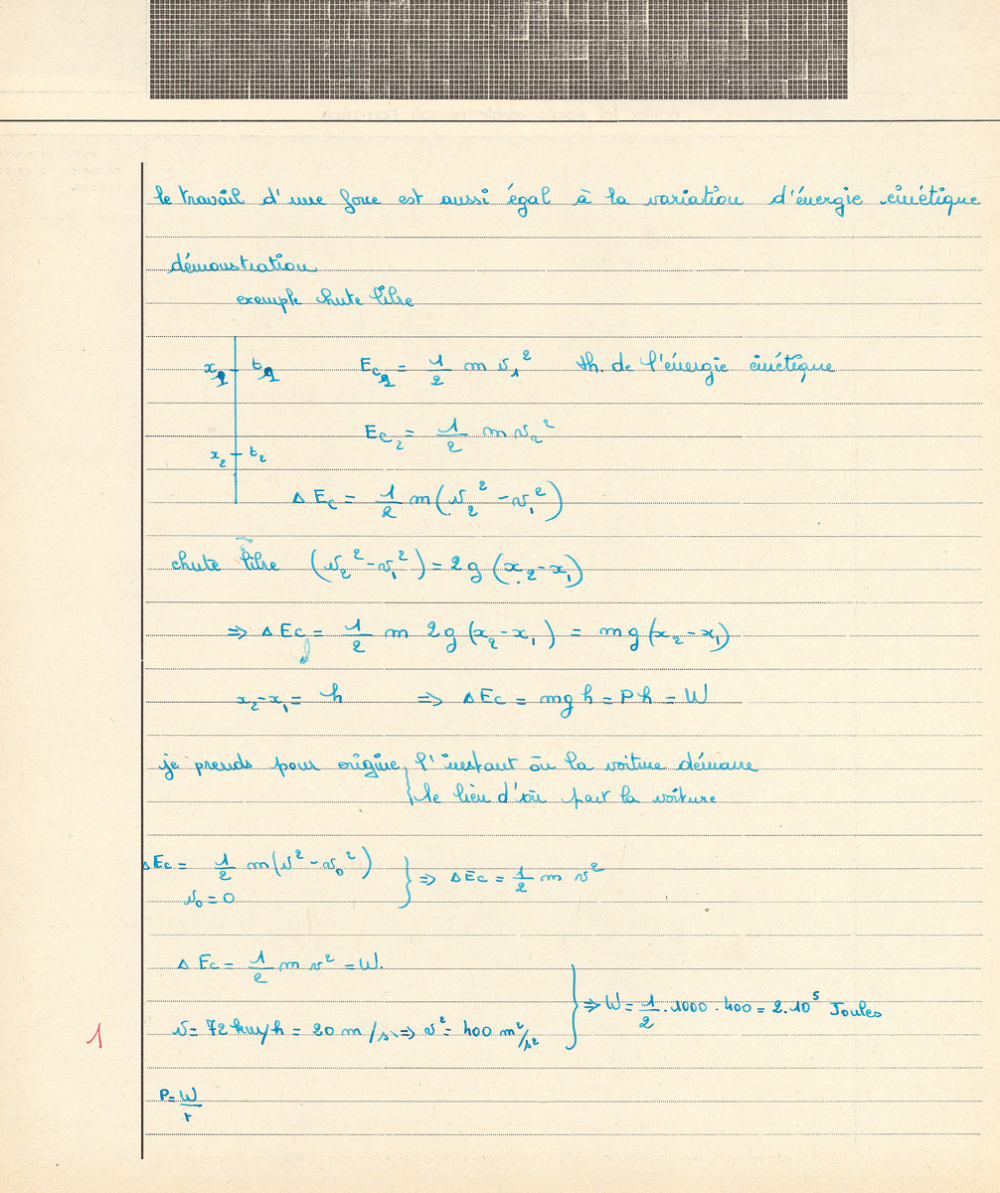 le travail d'une force est aussi égal à la variation d'énergie cinétique
démonstration
exemple chute libre
x₁ t₁ Ec₁ = 1/2 m v₁² th. de l'énergie cinétique
Ec₂ = 1/2 m v₂²
x₂ t₂
Δ Ec = 1/2 m (v₂² - v₁²)
chute libre (v₂² - v₁²) = 2g (x₂ - x₁)
⇒ Δ Ec = 1/2 m 2g (x₂ - x₁) = mg (x₂ - x₁)
x₂ - x₁ = h ⇒ Δ Ec = mg h = P h = W
je prends pour origine { l'instant où la voiture démarre
le lieu d'où part la voiture
Δ Ec = 1/2 m (v² - v₀²)
v₀ = 0 } ⇒ Δ Ec = 1/2 m v²
Δ Ec = 1/2 m v² = W.
v = 72 km/h = 20 m/s ⇒ v² = 400 m²/s² } ⇒ W = 1/2 . 1000 . 400 = 2.10⁵ Joules
1
P = W/t